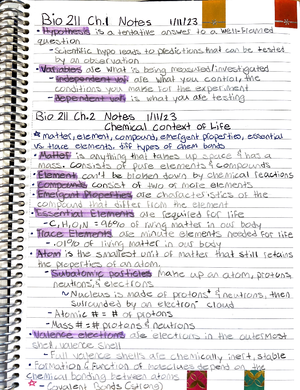 Bio 211 Ch.1 Notes 1/11/23
• Hypothesis is a tentative answer to a well-framed
question
- Scientific hypo leads to predictions that can be tested
by an observation
• Variables are what is being measured/investigated
- Independent var. are what you control, the
conditions you make for the experiment
- dependent var. is what you are testing
Bio 211 Ch.2 Notes 1/11/23
Chemical Context of Life
* matter, element, compound, emergent properties, essential
vs trace elements, diff types of chem bonds
• Matter is anything that takes up space & has a
mass. consists of pure elements & compounds
• Element can't be broken down by chemical reactions
• Compounds consist of two or more elements
• Emergent Properties are characteristics of the
compound that differ from the element
• Essential Elements are required for life
- C, H, O, N = 96% of living matter in our body
• Trace Elements are minute elements needed for life
- .01% of living matter in our body
• Atom is the smallest unit of matter that still retains
the properties of an atom.
- Subatomic particles make up an atom, protons,
neutrons, & electrons
~ Nucleus is made of protons & neutrons, then
surrounded by an electron cloud
- Atomic # = # of protons
- Mass # = # protons & neutrons
• Valence electrons are electrons in the outermost
shell, valence shell
- Full valence shells are chemically inert, stable
• Formation & function of molecules depend on the
chemical bonding between atoms
- Covalent Bonds (strong)